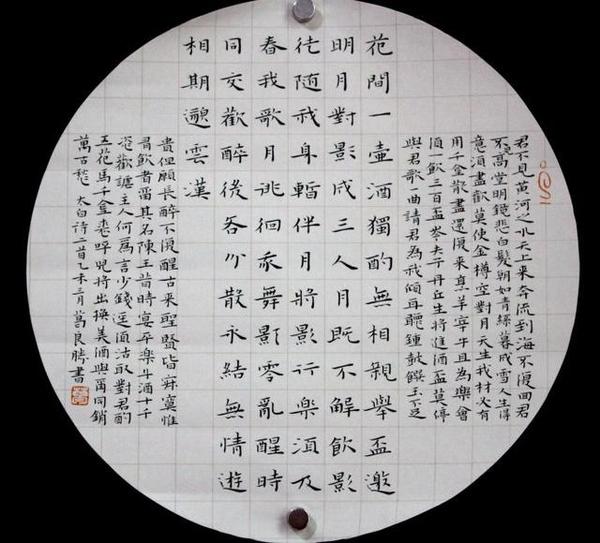 君不見黃河之水天上來奔流到海不復回君
不見高堂明鏡悲白髮朝如青絲暮成雪人生得
意須盡歡莫使金樽空對月天生我材必有
用千金散盡還復來烹羊宰牛且為樂會
須一飲三百盃岑夫子丹丘生將進酒盃莫停
與君歌一曲請君為我傾耳聽鍾鼓饌玉不足
花間一壺酒獨酌無相親舉盃邀
明月對影成三人月既不解飲影
徒随我身暫伴月將影行樂須及
春我歌月徘徊我舞影零亂醒時
同交歡醉後各分散永結無情遊
相期邈雲漢
貴但願長醉不復醒古來聖賢皆寂寞惟
有飲者留其名陳王昔時宴平樂斗酒十千
恣歡謔主人何為言少錢逕須沽取對君酌
五花馬千金裘呼兒將出換美酒與爾同銷
萬古愁 太白詩二首乙未三月葛良勝書